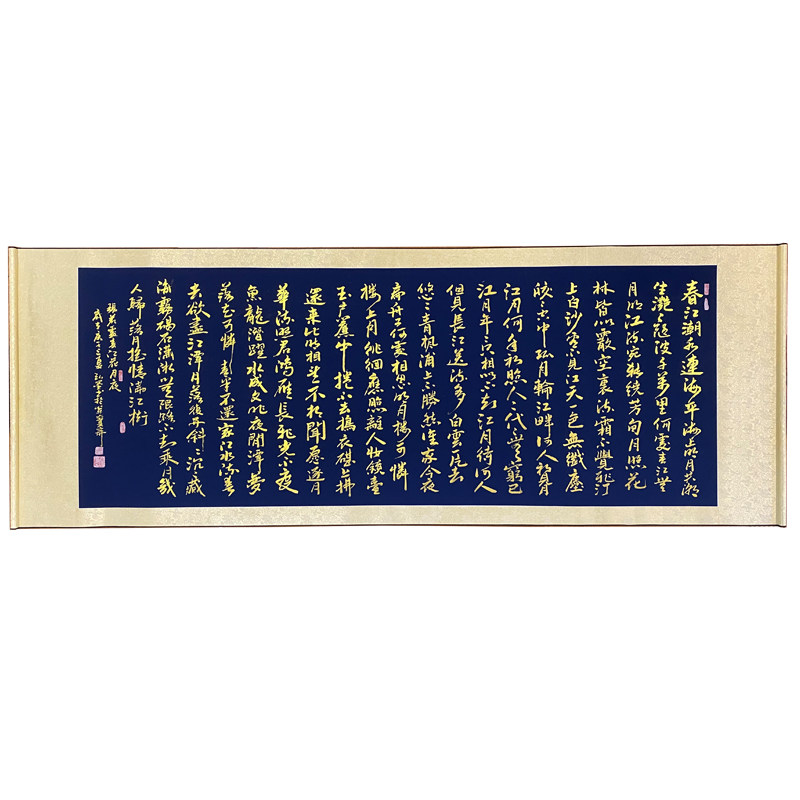 春江潮水連海平海上明月共潮
生灧〻隨波千萬里何處春江無
月明江流宛轉繞芳甸月照花
林皆似霰空裏流霜不覺飛汀
上白沙看不見江天一色無纖塵
皎〻空中孤月輪江畔何人初見月
江月何年初照人〻代〻無窮已
江月年〻只相似不知江月待何人
但見長江送流水白雲一片去
悠〻青楓浦上不勝愁誰家今夜
扁舟子何處相思明月樓可憐
樓上月徘徊應照離人妝鏡臺
玉戶簾中捲不去搗衣砧上拂
還來此時相望不相聞願逐月
華流照君鴻雁長飛光不度
魚龍潛躍水成文昨夜閑潭夢
落花可憐春半不還家江水流春
去欲盡江潭月落復西斜〻沉〻藏
海霧碣石瀟湘無限路不知乘月幾
人歸落月搖情滿江樹
張若虛春江花月夜